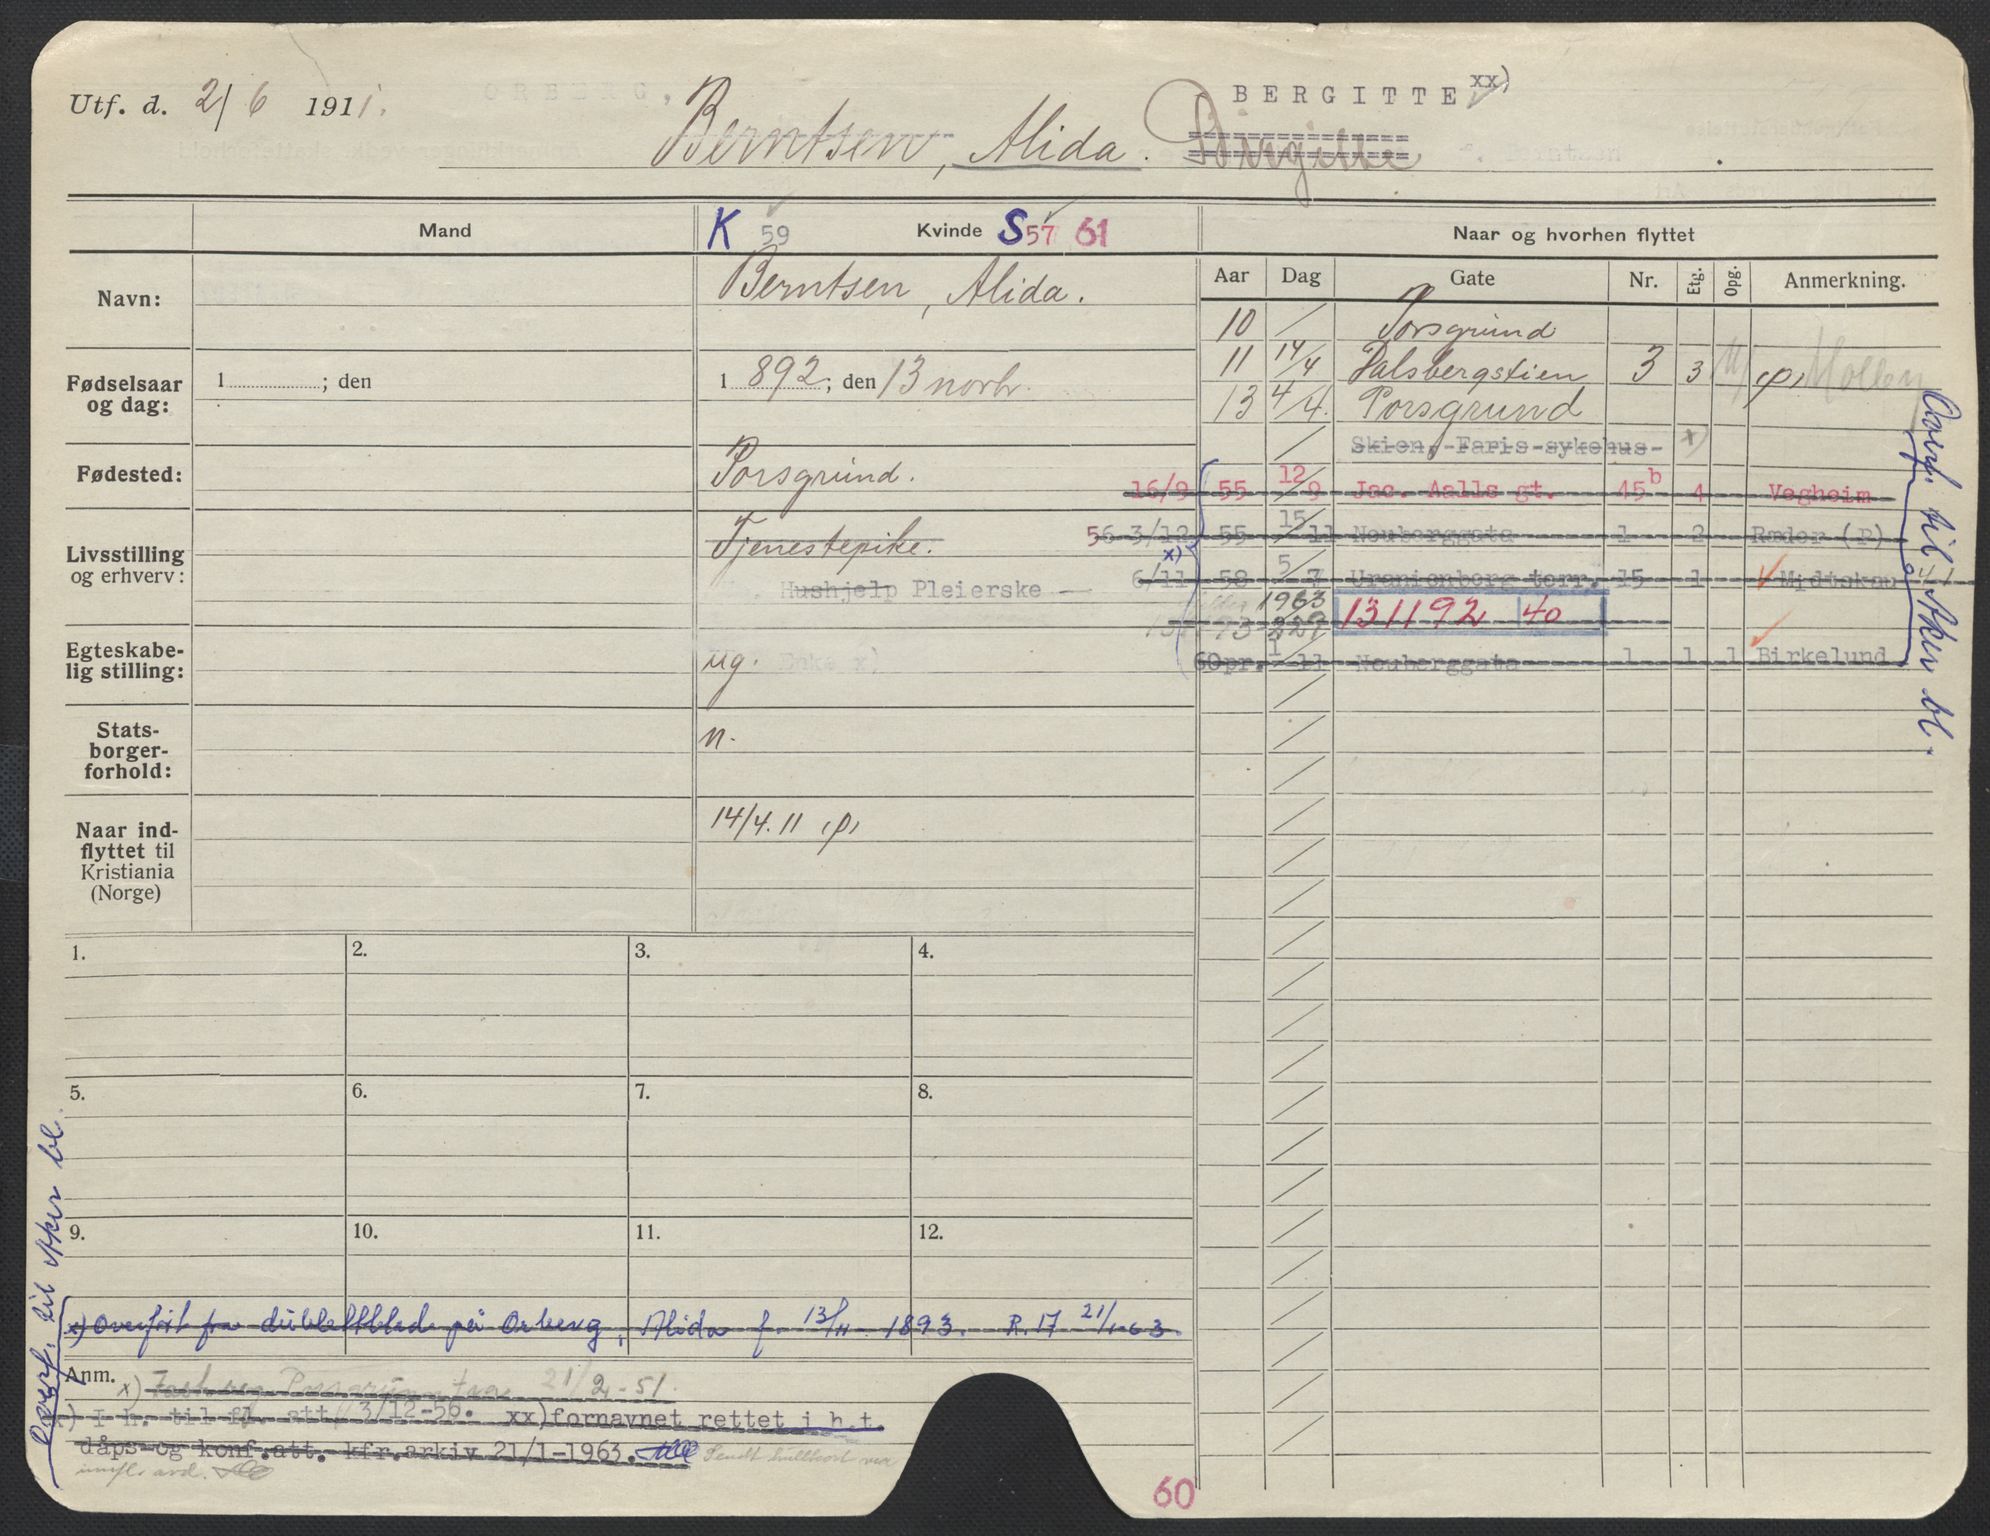 Utf. d. 2/6 1911.
ORBERG,
BERGITTE xx)
Berntsen, Alida. Birgitte
Mand K 59 Kvinde S 57 61 Naar og hvorhen flyttet
Aar Dag Gate Nr. Etg. Opg. Anmerkning.
Navn: Berntsen, Alida.
10 Porsgrund
11 14/4 Dalsbergstien 3 3
Fødselsaar og dag: 1 ; den 1 892; den 13 novbr.
13 4/4. Porsgrund
Skien, Faris sykehus x)
Fødested: Porsgrund.
16/9 55 12/9 Jac. Aalls gt. 45 b 4 Vegheim
Livsstilling og erhverv: Tjenestepike.
56 3/12 55 15/11 Neuberggata 1 2 Ræder (P)
Hushjelp Pleierske
x) 6/11 58 5/7 Uranienborg terr. 15 1 Midtskau
1963
131192 40
Egteskabelig stilling: ug. Enke x)
60pr. 1/11 Neuberggata 1 1 1 Birkelund
Statsborgerforhold: n.
Naar indflyttet til Kristiania (Norge) 14/4. 11 (p)
1. 2. 3. 4.
5. 6. 7. 8.
9. 10. 11. 12.
x) Overført fra dublettblad på Orberg, Alida f. 13/11 1893. R. 17 21/1-63.
Anm.
x) 21/2-51.
x) I h. til fl. att. 3/12-56. xx) fornavnet rettet i h.t.
dåps- og konf.att. kfr.arkiv 21/1-1963. Sendt hullkort via
innfl. avd.
60
Overf. til Aker bl.
Overf. til Aker bl.